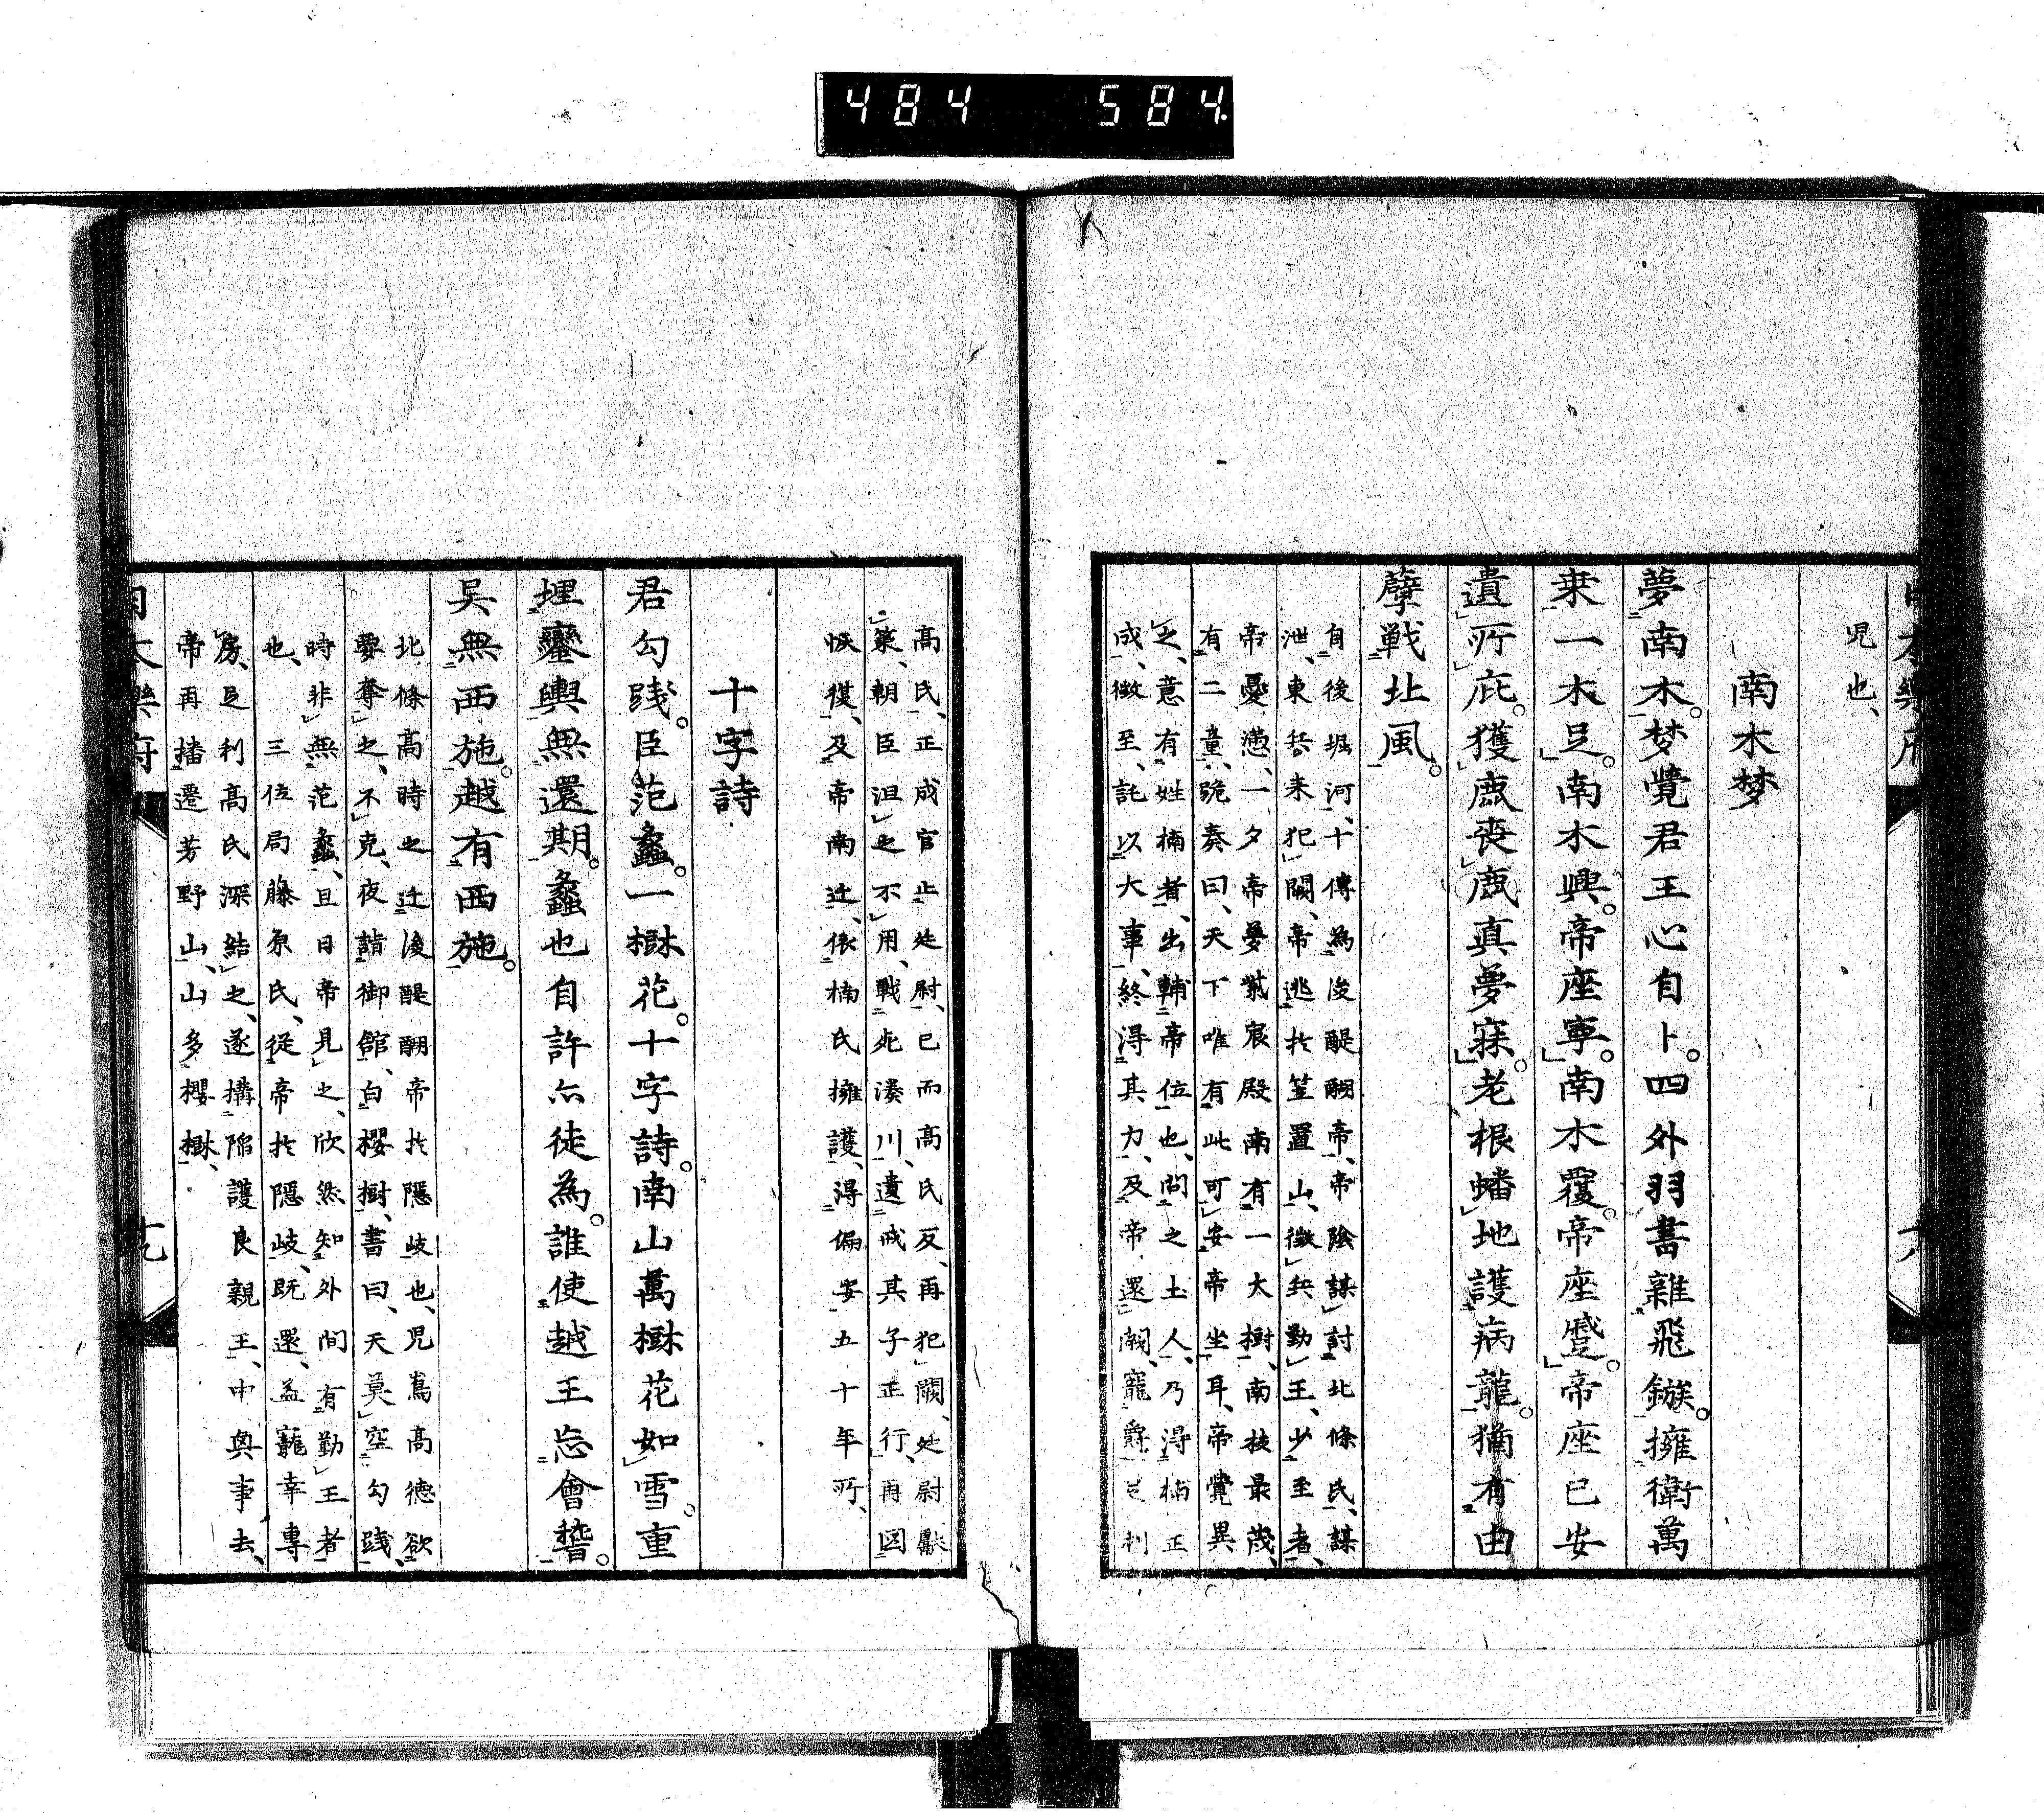 484 584
日本樂府
六
児也、
南木梦
夢南木。梦覺君王心自卜。四外羽書雜飛鏃。擁衛萬
乗一木足。南木興。帝座寧。南木覆。帝座蹙。帝座已安
遺所庇。獲鹿喪鹿真夢寐。老根蟠地護病龍。猶有由
孽戰北風。
自後堀河、十傳為後醍醐帝、帝陰謀討北條氏、謀
泄、東兵来犯闕、帝逃於笠置山、徴兵勤王、少至者、
帝憂懣、一夕帝夢紫宸殿南有一大樹、南枝最茂、
有二童、跪奏曰、天下唯有此可安帝坐耳、帝覺異
之、意有姓楠者、出輔帝位也、問之土人、乃得楠正
成、徴至、託以大事、終得其力、及帝還闕、寵爵足利
高氏、正成官止廷尉、已而高氏反、再犯闕、廷尉獻
策、朝臣沮之不用、戰死湊川、遺戒其子正行、再図
恢復、及帝南迁、依楠氏擁護、得偏安五十年所、
十字詩
君勾踐。臣范蠡。一樹花。十字詩。南山萬樹花如雪。重
埋鑾輿無還期。蠡也自許亦徒為。誰使越王忘會稽。
吴無西施。越有西施。
北條高時之迁後醍醐帝於隠岐也、児嶌高徳欲
要奪之、不克、夜詣御館、白櫻樹、書曰、天莫空勾踐、
時非無范蠡、旦日帝見之、欣然知外間有勤王者
也、三位局藤原氏、從帝於隠岐、既還、益寵幸專
房、足利高氏深結之、遂搆陥護良親王、中興事去、
帝再播遷芳野山、山多櫻樹、
日本樂府